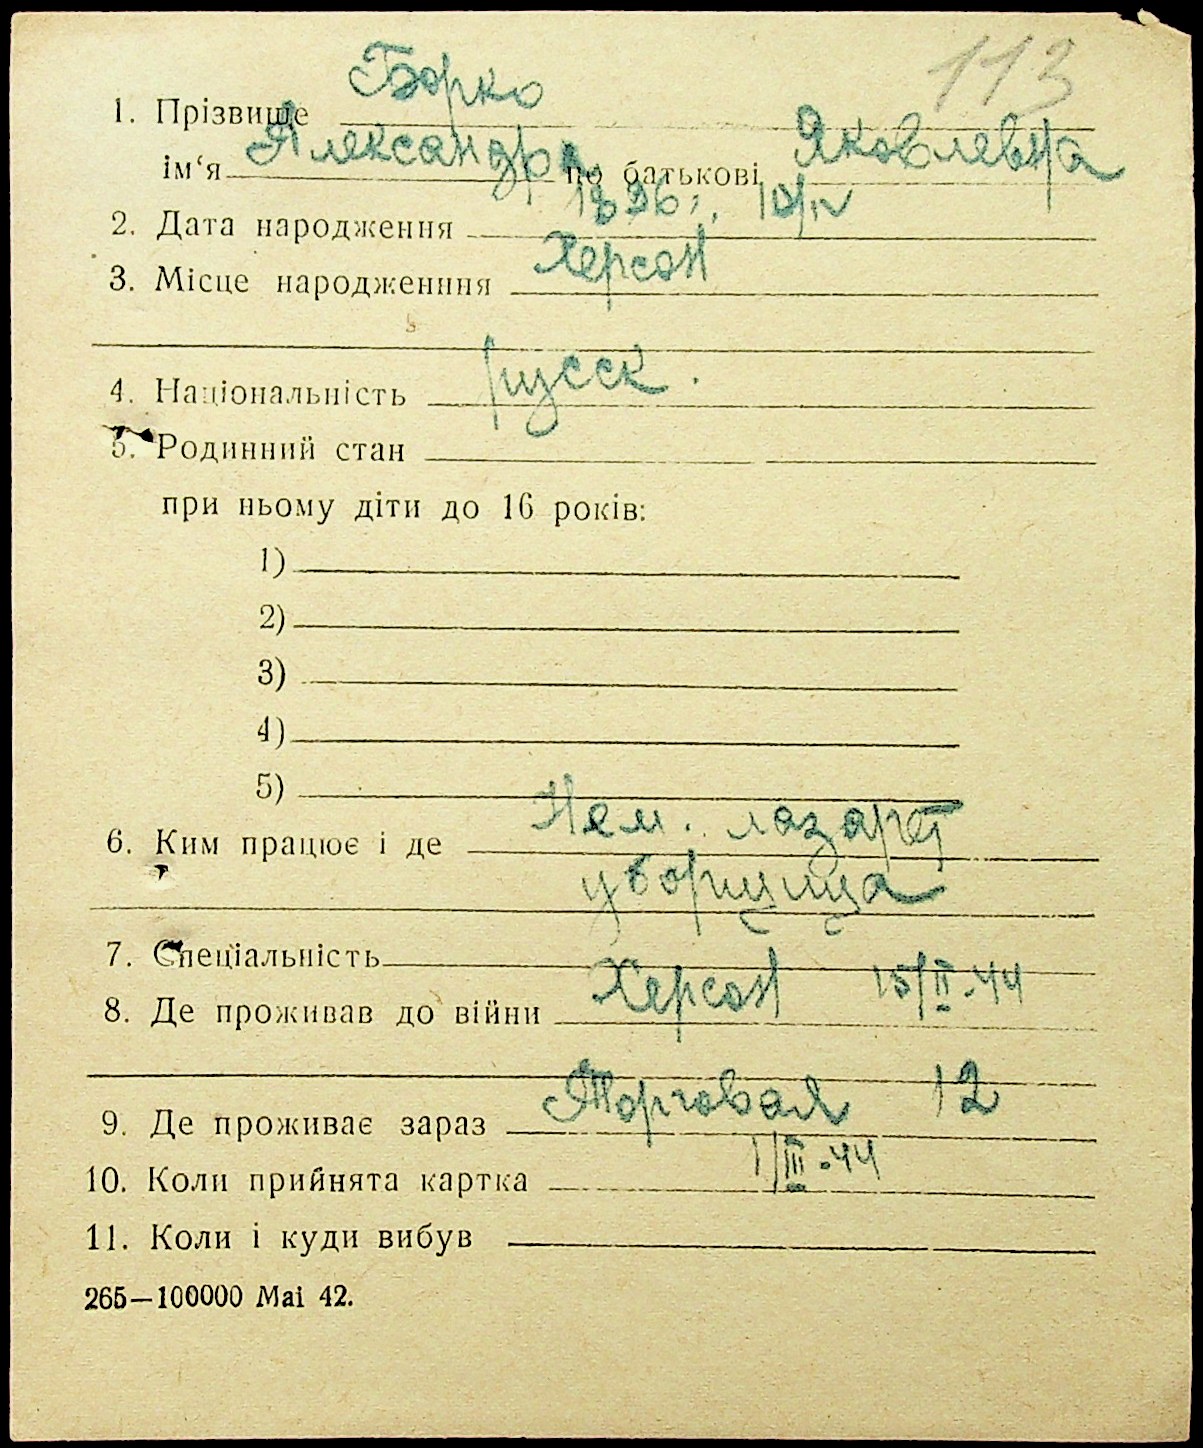 113
1. Прізвище Борко
ім‘я Александра по батькові Яковлевна
2. Дата народження 1896 г., 10/IV
3. Місце народженння Херсон
4. Національність русск.
5. Родинний стан
при ньому діти до 16 років:
1)
2)
3)
4)
5)
6. Ким працює і де Нем. лазарет
уборщица
7. Спеціальність
8. Де проживав до війни Херсон 15/II-44
9. Де проживає зараз Торговая 12
10. Коли прийнята картка 1/III-44
11. Коли і куди вибув
265—100000 Mai 42.